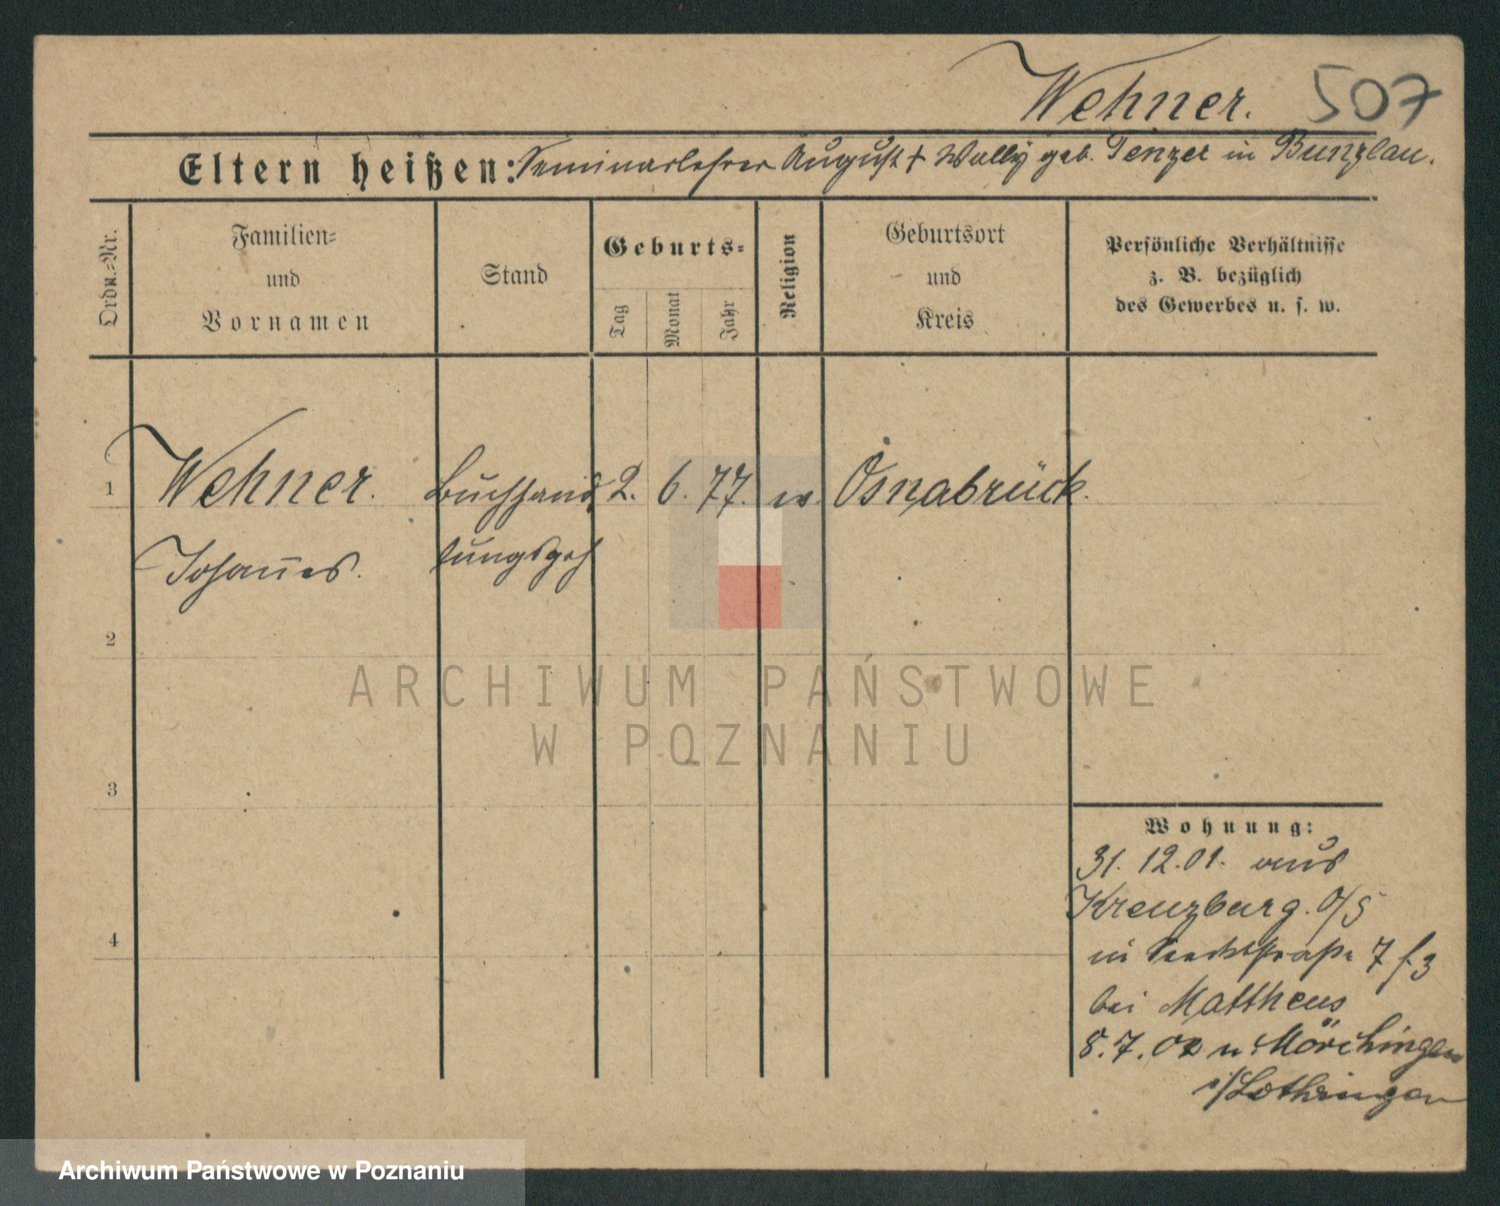 Wehner. 507
Eltern heißen: Seminarlehrer August + Wally geb. Tenzer in Bunzlau.
Ordn.=Nr.
Familien=
und
Vornamen
Stand
Geburts=
Tag
Monat
Jahr
Religion
Geburtsort
und
Kreis
Persönliche Verhältnisse
z. B. bezüglich
des Gewerbes u. s. w.
1 Wehner. Buchhand 2. 6. 77. ev. Osnabrück.
Johannes. lungsgeh
2
3
4
Wohnung:
31. 12. 01. aus
Kreuzburg. O/S
in 7
bei Mattheus
8. 7. 02 n. Mörchingen
i/Lothringen
ARCHIWUM PAŃSTWOWE
W POZNANIU
Archiwum Państwowe w Poznaniu